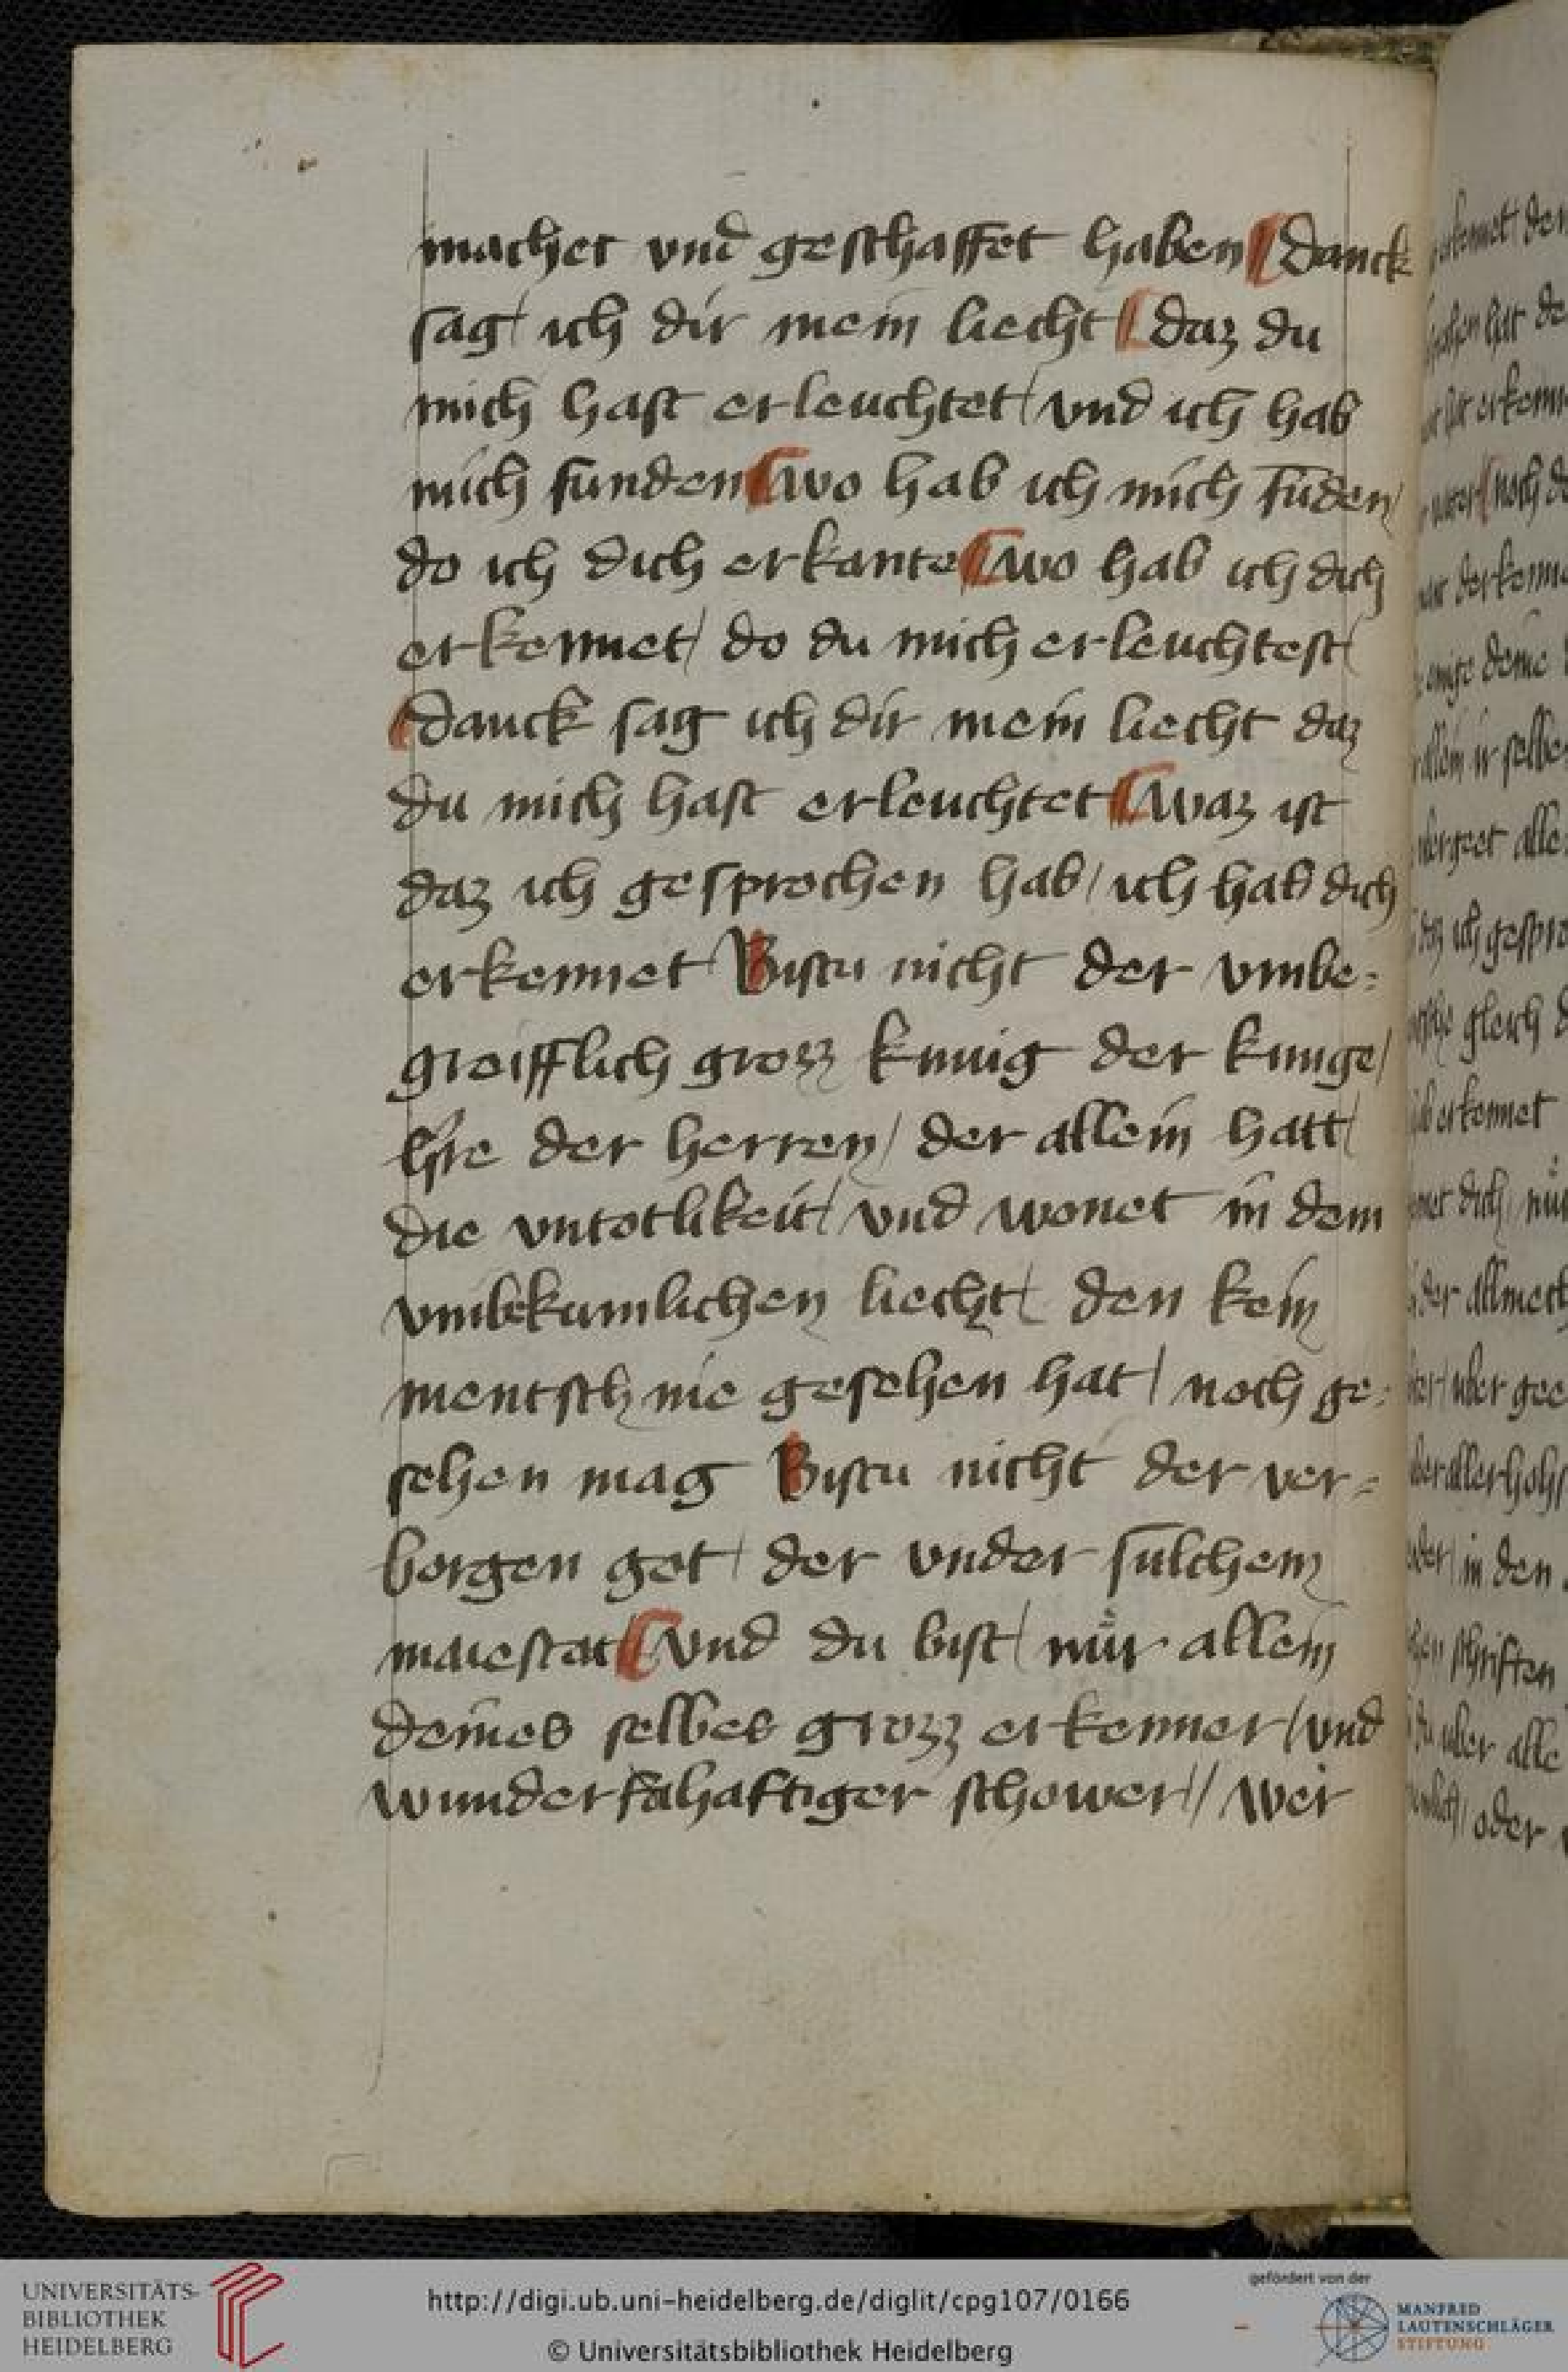 machet vnd geschaffet haben danck
sag / ich dir mein liecht daz du
mich hast erleuchtet / vnd ich hab
mich funden wo hab ich mich fūden /
do ich dich erkante wo hab ich dich
erkennet / do du mich erleuchtest /
danck sag ich dir mein liecht daz
du mich hast erleuchtet waz ist
daz ich gesprochen hab / ich hab dich
erkennet Bistu nicht der vmbe=
greifflich grozz kunig der kunge /
hre der herren / der allein hatt /
die vntotlikeit / vnd wonet in dem
vmbekumlichen liecht / den kein
mentsch nie gesehen hat / noch ge=
sehen mag Bistu nicht der ver=
borgen got / der vnder sulchem
maiestat vnd du bist / nuͦr allein
deines selbes grozz erkenner / vnd
wunderhaftiger schower // Wer
UNIVERSITÄTS-
BIBLIOTHEK
HEIDELBERG
http://digi.ub.uni-heidelberg.de/diglit/cpg107/0166
© Universitätsbibliothek Heidelberg
gefördert von der
MANFRED
LAUTENSCHLÄGER
STIFTUNG